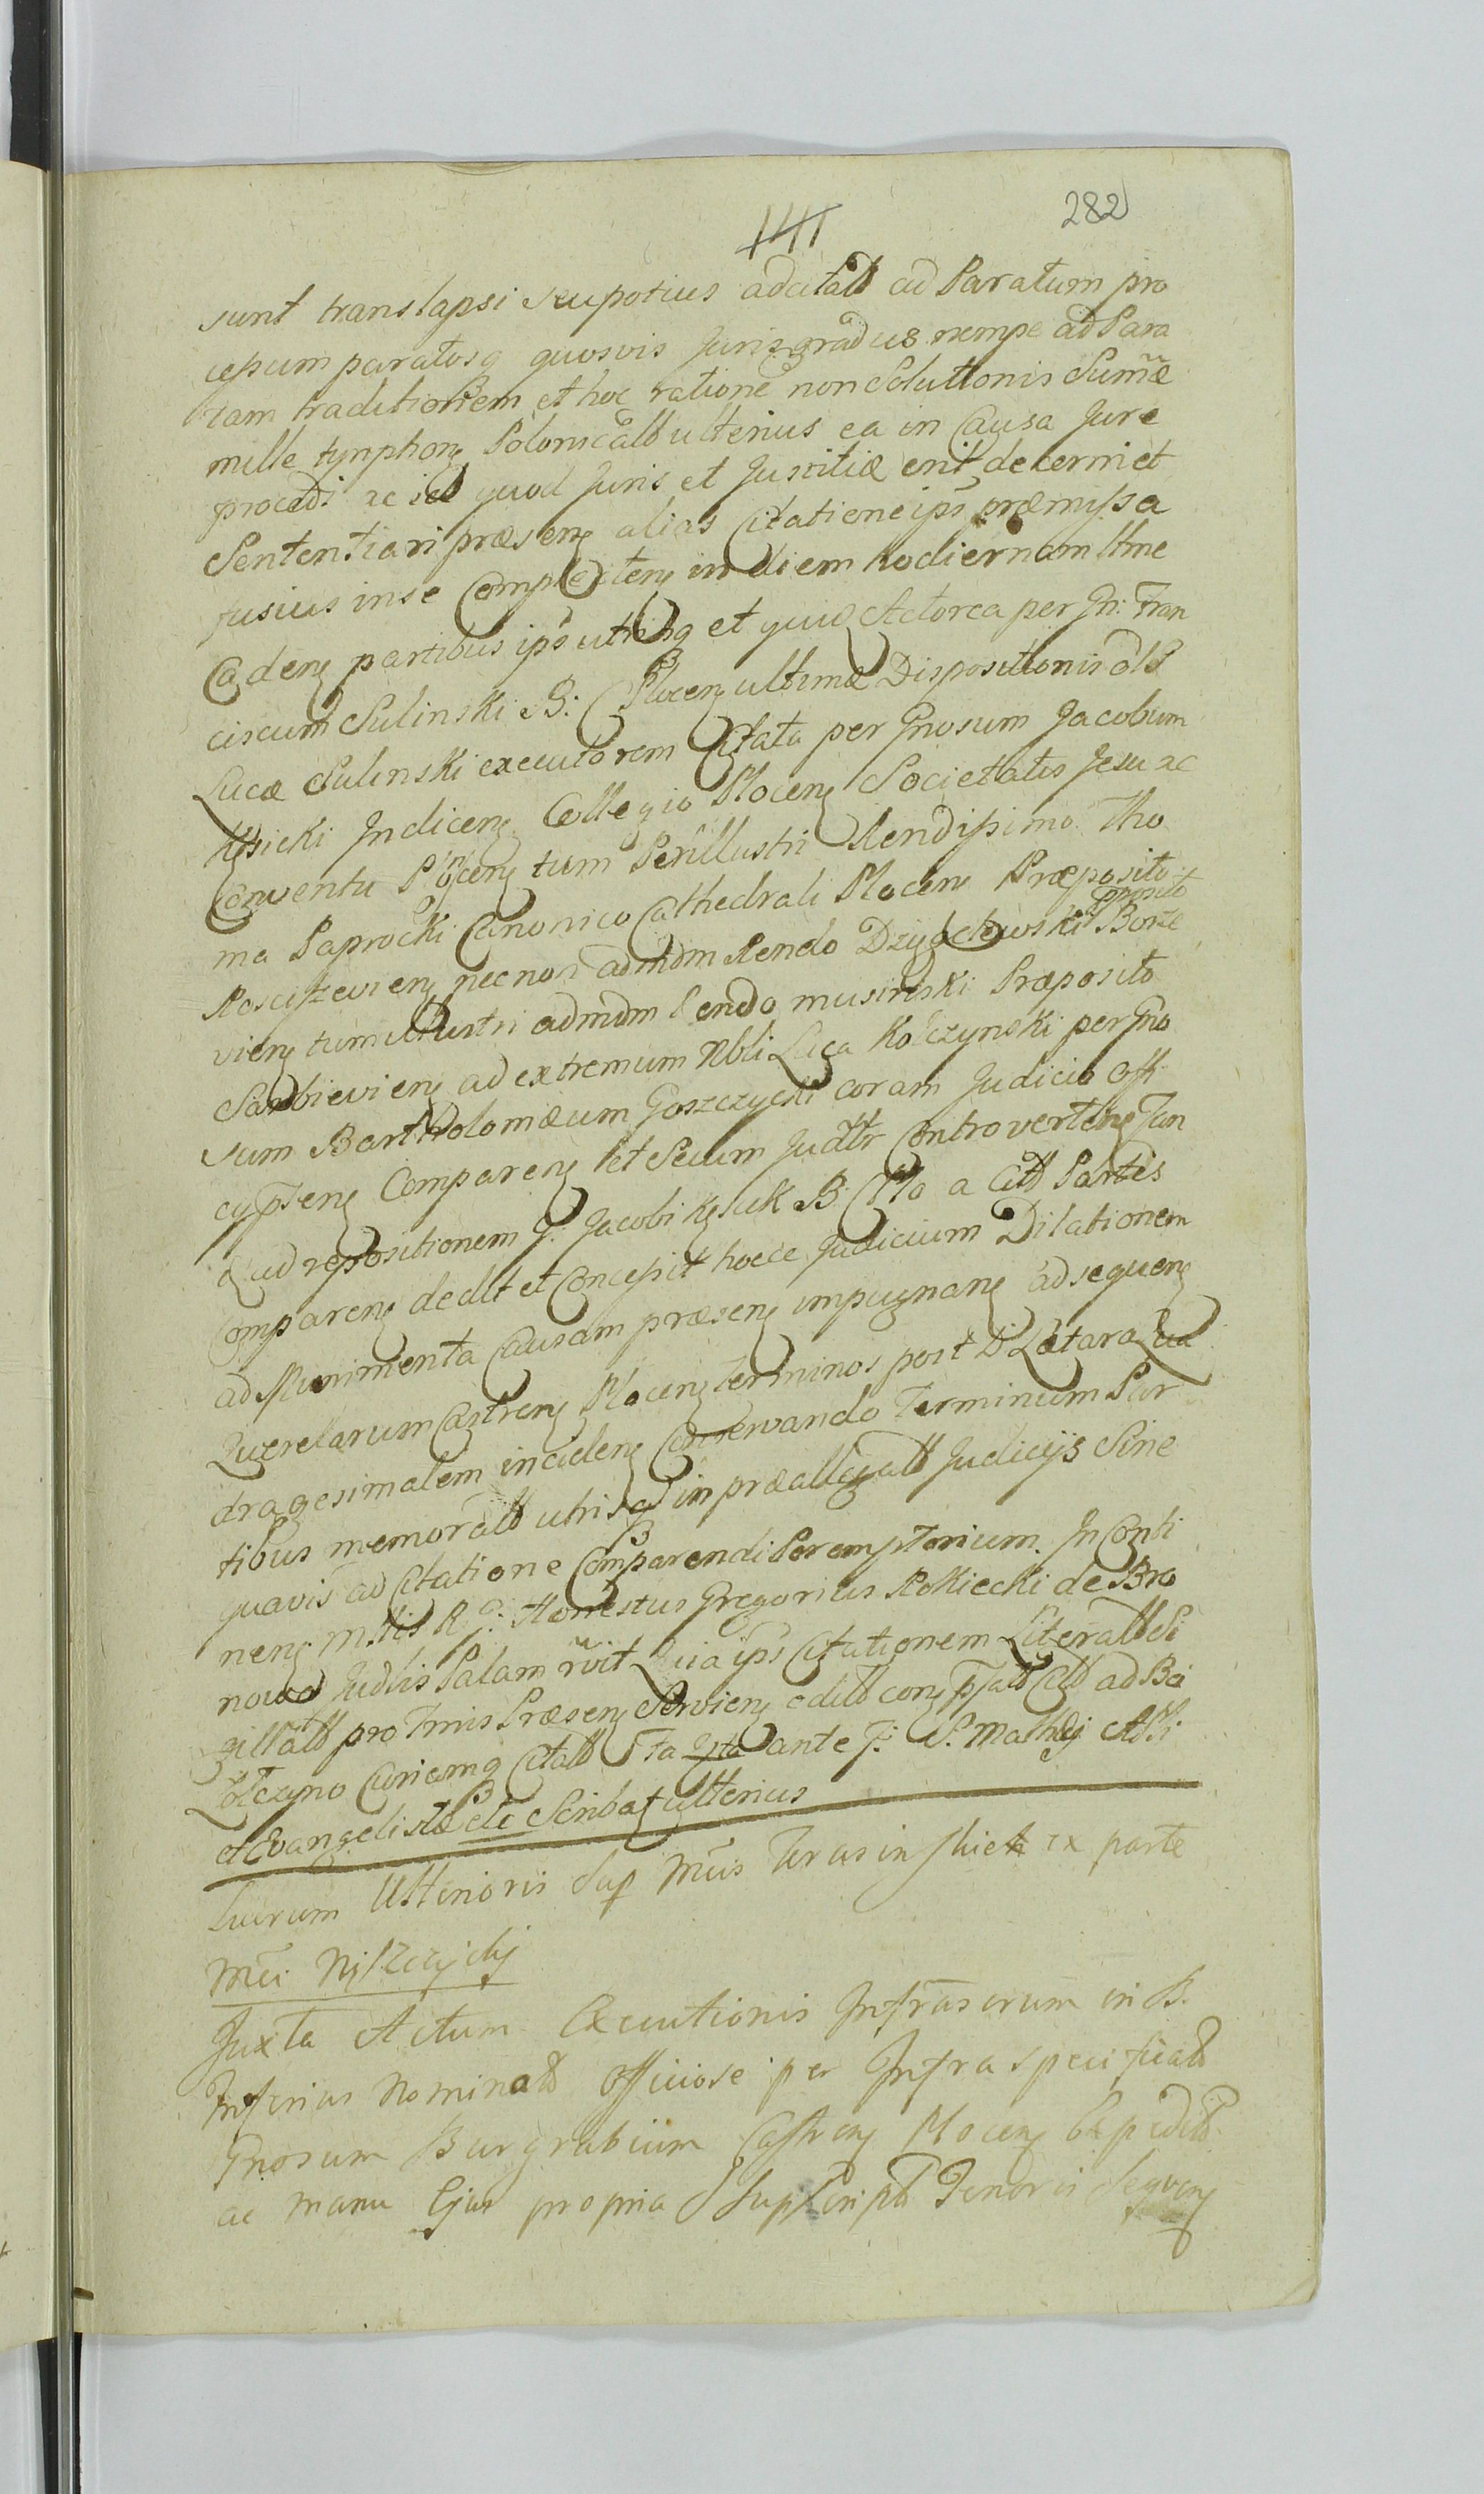 141
282
sunt translapsi seu potius ad citatt ad Paratum pro
cessum paratosq quosvis Juris gradus nempe ad Para
tam traditionem et hoc ratione non Solutionis Sumæ
mille tynphonꝫ Polonicatt ulterius ea in Causa Jure
procedi ac id quod Juris et Justitiæ erit decerni et
Sententiari præsenꝫ alias Citatione ips præmissa
fusius in se Complectenꝫ in diem hodiernam ltme
Cadenꝫ partibus ips utrisq et quidē Actorea per Gn: Fran
ciscum Sulinski B: C Plocenꝫ ultimæ Dispositionis olt
Lucæ Sulinski executorem Citata per Gnosum Jacobum
Kęsicki Judicenꝫ Collegio Plocenꝫ Societatis Jesu ac
Conventu Plocenꝫ tum Perillustri Rendissimo Tho
ma Paprocki Canonico Cathedrali Plocenꝫ Præposito
Rosciszevienꝫ necnon admdm Rendo Dzięgielewski Præposito Borze
vienꝫ tum Illustri admdm Rendo musinski Præposito
Sarbievienꝫ ad extremum Nbli Luca Kołczynski per Gno
sum Bartholomæum Goszczycki coram Judicio off
cypsenꝫ Comparenꝫ et Secum Judttr Controvertenꝫ Tan
q ad repositionem G: Jacobi Kęsick B: C Plo a Citt Partis
Comparenꝫ dedit et Concessit hocce Judicium Dilationem
ad Munimenta Causam præsenꝫ impugnanꝫ ad sequenꝫ
Querelarum Castrenꝫ Plocenꝫ terminos post D Lætara Qua
dragesimalem incidenꝫ Conservando Terminum Par
tibus memoratt utrisq in præallegatt Judicijs Sine
quavis ad Citatione Comparendi Peremptorium. In Conti
nenꝫ Mttis R: G: Honestus Gregorius Rokiecki de Bro
nowo Judtis Palam rvit Quia ips Citationem Literatt Si
gillatt pro Tmis Præsenꝫ Servienꝫ editt conꝫ pſatt Citt ad Bo
Kołczyno Curiamq Citatt Fta Ipta ante F: S: Mathæj Apli
et Evangelistæ etc Scribat ulterius
Lucrum Ulterioris Sup Mcis Tarasinskich ex parte
Mci Niszczyckij
Juxta Actum Executionis Infrascrum in B.
Inferius Nominatt Officiose per Infra specificatt
Gnosum Burgrabium Castrenꝫ Plocenꝫ Expeditt
ac manu Ejus propria Supscriptt Tenoris Sequenꝫ